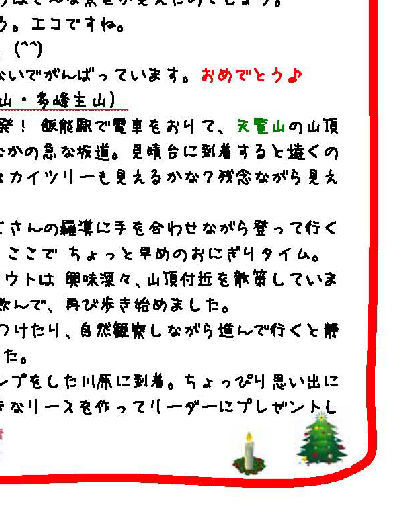 う。エコですね。
(^^)
ないでがんばっています。おめでとう♪
山・多峰主山)
発! 飯能駅で電車をおりて、天覧山の山頂
なかの急な坂道。見晴台に到着すると遠くの
カイツリーも見えるかな?残念ながら見え
さんの羅漢に手を合わせながら登って行く
ここで ちょっと早めのおにぎりタイム。
ウトは 興味深々、山頂付近を散策していま
飲んで、再び歩き始めました。
つけたり、自然観察しながら進んで行くと静
た。
ンプをした川原に到着。ちょっぴり思い出に
きなリースを作ってリーダーにプレゼントし